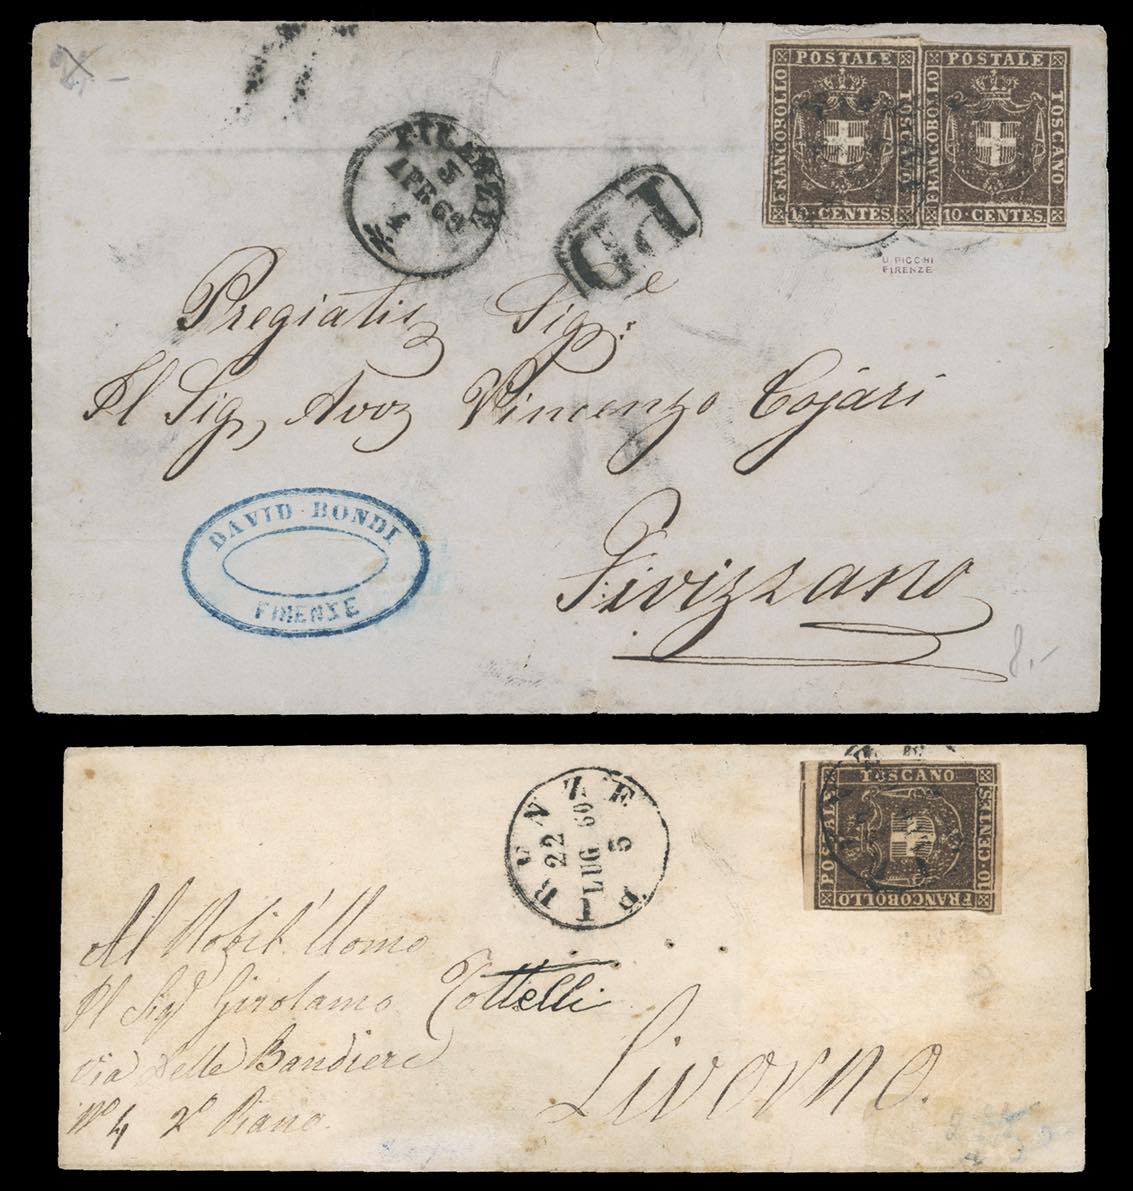 POSTALE
FRANCOBOLLO
TOSCANO
10 · CENTES
POSTALE
FRANCOBOLLO
TOSCANO
10 · CENTES
U. PICCHI
FIRENZE
FIRENZE
5
APR 60
4
P.D
Pregiatis Sig.re
Il Sig Avvo Vincenzo Cojari
Fivizzano
DAVID · BONDI
FIRENZE
8.-
TOSCANO
POSTALE
10 · CENTES
FRANCOBOLLO
FIRENZE
22
LUG 60
5
Al Nobil' Uomo
Il Sigr Girolamo Tottelli
Via Delle Bandiere
No 4 2o Piano.
Livorno.